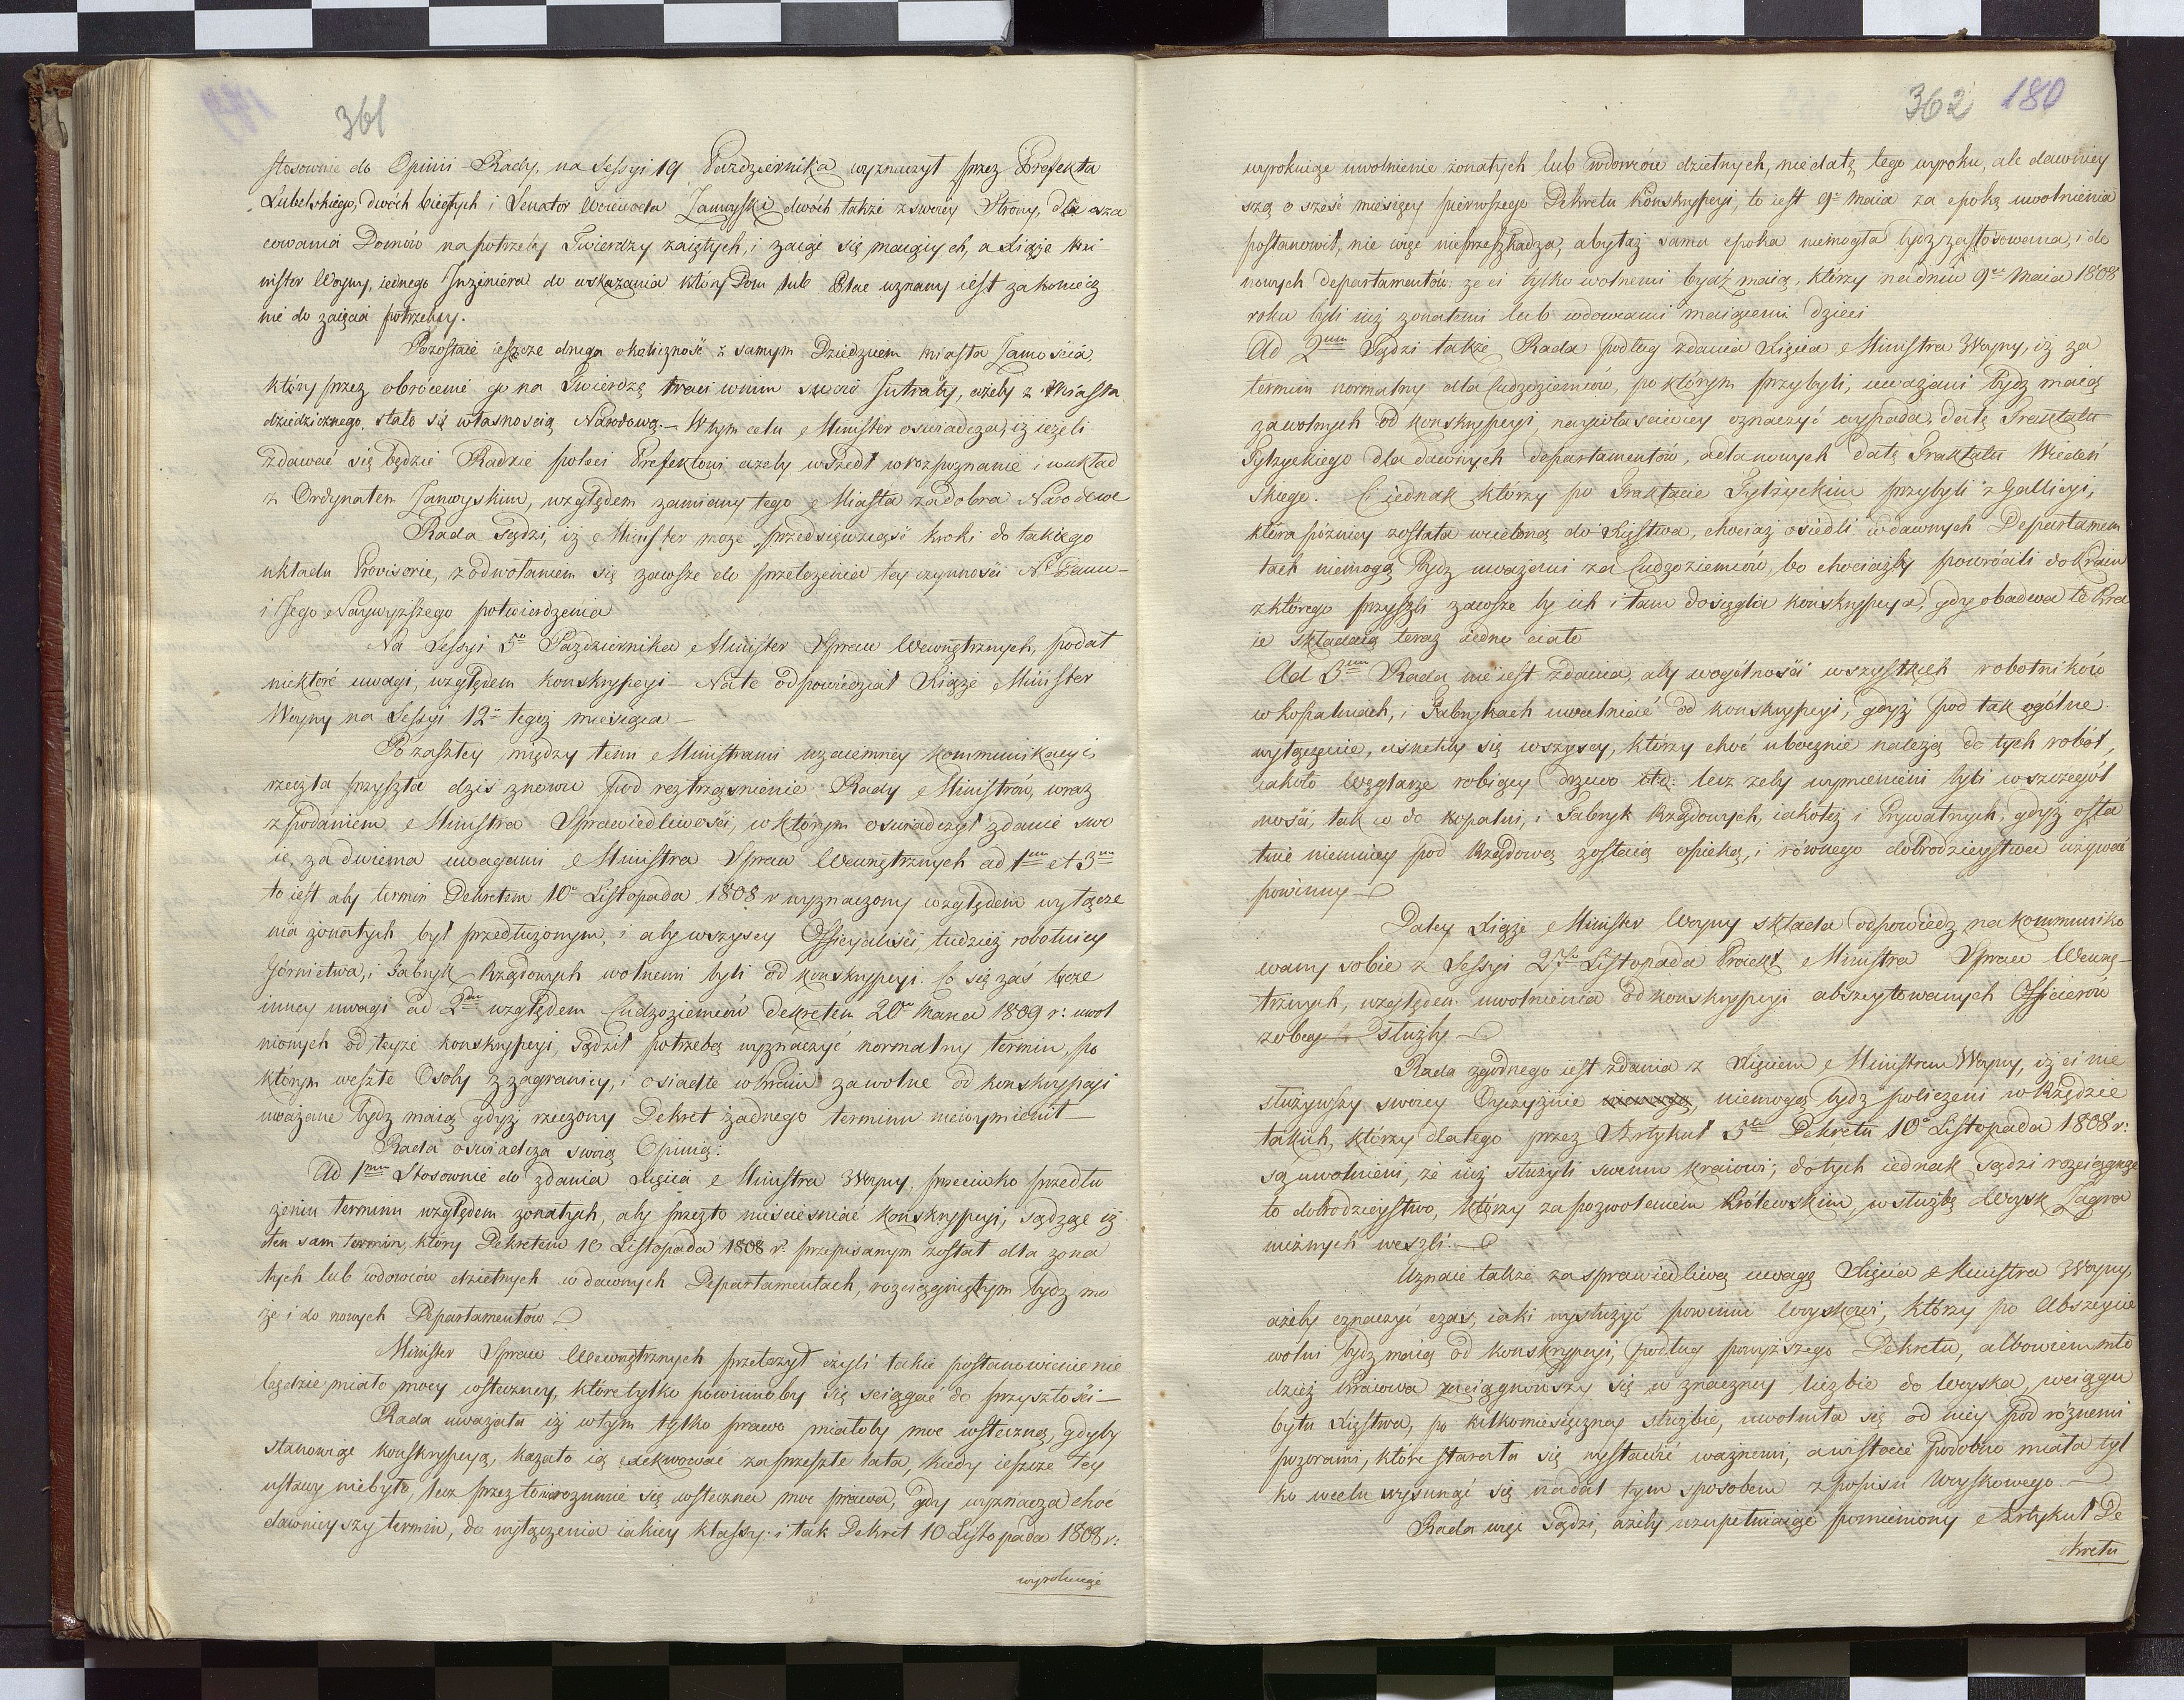 361
stosownie do Opinii Rady, na Sessyi 19 Października wyznaczył przez Prefekta
Lubelskiego, dwóch biegłych i Senator Woiewoda Zamoyski dwóch także z swoiey Strony, dla osza
cowania Domów na potrzeby Twierdzy zaiętych, i zaiąć się maiących, a Xiąże Mi-
nister Woyny, iednego Inżiniera do wskazania który Dom lub Plac uznany iest za koniecz
nie do zaięcia potrzebny.
Pozostaie ieszcze druga okoliczność z samym Dziedzicem Miasta Zamościa
który przez obrócenie go na Twierdzę traci wnim swoie Intraty, ażeby z Miasta
dziedzicznego, stało się własnością Narodową. — W tym celu Minister oświadcza, iż ieżeli
zdawać się będzie Radzie poleci Prefektowi ażeby wszedł w rozpoznanie i w układ
z Ordynatem Zamoyskim, względem zamiany tego Miasta za dobra Narodowe
Rada sądzi, iż Minister może przedsięwziąść kroki do takiego
układu Provisorie, z odwołaniem się zawsze do przełożenia tey czynności N. Panu
i Jego Naywyższego potwierdzenia
Na Sessyi 5º Października Minister Spraw Wewnętrznych, podał
niektóre uwagi, względem konskrypcyi — Na te odpowiedział Xiąże Minister
Woyny na Sessyi 12º tegoż miesiąca —
Po zaszłey między temi Ministrami wzaiemney kommunikacyi
rzeczta przyszła dziś znowu pod roztrząśnienie Rady Ministrów, wraz
z podaniem Ministra Sprawiedliwości, w którym oświadczył zdanie swo
ie, za dwiema uwagami Ministra Spraw Wewnętrznych ad 1mum et 3um
to iest aby termin Dekretem 10º Listopada 1808 r wyznaczony względem wyłącze
nia żonatych był przedłużonym, i aby wszyscy Officyaliści tudzież robotnicy
Górnictwa, i Fabryk Rządowych wolnemi byli od konskrypcyi. Co się zaś tycze
inney uwagi ad 2dum względem Cudzoziemców Dekretem 20º Marca 1809 r: uwol
nionych od teyże konskrypcyi, sądził potrzebą wyznaczyć normalny termin, po
którym weszłe Osoby z zagranicy, i osiadłe w kraiu za wolne od konskrypcyi
uważane bydź maią gdyż rzeczony Dekret żadnego terminu niewymienił —
Rada oświadcza swoią Opinią.
Ad 1mum Stosownie do zdania Xięcia Ministra Woyny, przeciwko przedłu
żeniu terminu względem żonatych, aby przezto nieścieśniać konskrypcyi, sądząc iż
ten sam termin, który Dekretem 10 Listopada 1808 r. przepisanym został dla żona
tych lub wdowców dzietnych w dawnych Departamentach, rozciągniętym bydź mo
że i do nowych Departamentów
Minister Spraw Wewnętrznych przełożył czyli takie postanowienie nie
będzie miało mocy wsteczney, które tylko powinnoby się ściągać do przyszłości —
Rada uważała iż w tym tylko prawo miałoby moc wsteczną, gdyby
stanowiąc konskrypcyą, kazało ią exekwować za przeszłe lata, kiedy ieszcze tey
ustawy niebyło, lecz przez to nierozumié się wsteczna moc prawa, gdy wyznacza choć
dawnieyszy termin, do wyłączenia iakiey klassy: i tak Dekret 10 Listopada 1808 r:
wyrokuiąc
362 180
wyrokuiąc uwolnienie żonatych lub wdowców dzietnych, nie datę tego wyroku, ale dawniey
szą o sześć miesięcy pierwszego Dekretu Konskrypcyi, to iest 9º Maia za epokę uwolnienia
postanowił, nic więc nieprzeszkadza, aby taż sama epoka niemogła bydź zastosowana, i do
nowych departamentów: że ci tylko wolnemi bydź maią, którzy na dniu 9ym Maia 1808
roku byli iuż żonatemi lub wdowcami maiącemi dzieci
Ad 2dum Sądzi także Rada podług zdania Xięcia Ministra Woyny, iż za
termin normalny dla Cudzoziemców, po którym przybyli, uważani bydź maią
za wolnych od konskrypcyi, naywłaściwiey oznaczyć wypada, datę Traktatu
Tylżyckiego dla dawnych departamentów, a dla nowych datę Traktatu Wiedeń
skiego. Ci iednak którzy po Traktacie Tylżyckim przybyli z Gallicyi,
która później została wcieloną do Xięstwa, chociaż osiedli w dawnych Departamen
tach niemogą bydź uważani za Cudzoziemców, bo chociażby powrócili do Kraiu
z którego przyszli zawsze by ich i tam dosięgła konskrypcya, gdy obadwa te Kra
ie składaią teraz iedno ciało
Ad 3um Rada nie iest zdania, aby w ogólności wszystkich robotników
w kopalniach, i Fabrykach uwalniać od konskrypcyi, gdyż pod tak ogólne
wyłączenie, cisnęliby się wszyscy, którzy choć ubocznie należą do tych robót,
iakoto Węglarze robiący drzewo itd: lecz żeby wymienieni byli w szczegól
ności, tak w do kopalni, i Fabryk Rządowych, iakoteż i Prywatnych, gdyż osta
tnie niemniey pod Rządową zostaią opieką, i równego dobrodzieystwa używać
powinny —
Daley Xiąże Minister Woyny składa odpowiedź na kommuniko
wany sobie z Sessyi 27º Listopada Proiekt Ministra Spraw Wewnę-
trznych, względem uwolnienia od konskrypcyi abszeytowanych Officierów
z obcey służby —
Rada zgodnego iest zdania z Xięciem Ministrem Woyny, iż ci nie
służywszy swoiey Oyczyznie niemogą bydź policzeni w Rzędzie
takich, którzy dlatego przez Artykuł 5º Dekretu 10º Listopada 1808 r:
są uwolnieni, że iuż służyli swemu kraiowi; do tych iednak sądzi rozciągnąć
to dobrodzieystwo, którzy za pozwoleniem Królewskim, w służbę Woysk Zagra
nicznych weszli. —
Uznaie także za sprawiedliwą uwagę Xięcia Ministra Woyny,
ażeby oznaczyć czas, iaki wysłużyć powinni woyskowi, którzy po Abszeycie
wolni bydź maią od konskrypcyi, podług powyższego Dekretu, albowiem mło
dzież kraiowa zaciągnąwszy się w znaczney liczbie do woyska, w ciągu
bytu Xięstwa, po kilkomiesięczney służbie, uwolniła się od niey pod różnemi
pozorami, które starała się wystawić ważnemi, a w istocie podobno miała tyl
ko w celu wysunąć się nadal tym sposobem z popisu Woyskowego —
Rada więc sądzi, ażeby uzupełniaiąc pomieniony Artykuł De
kretu